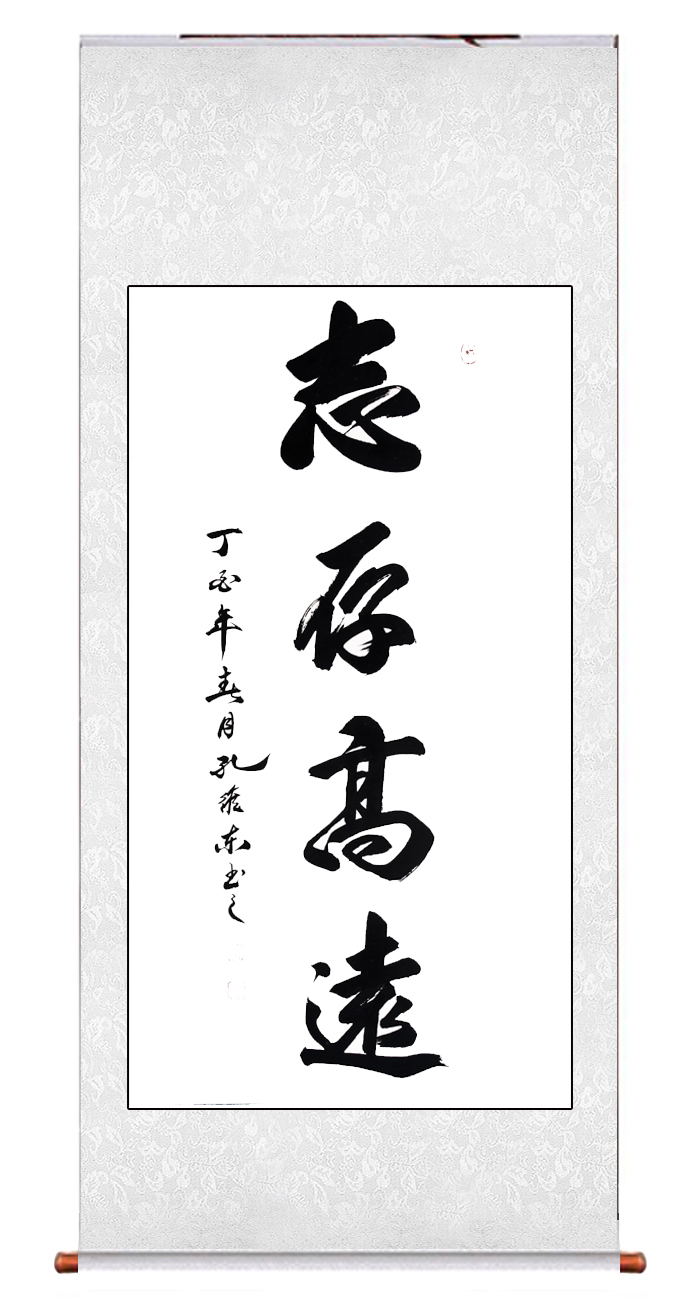 志存高遠
丁酉年春月孔維东书之